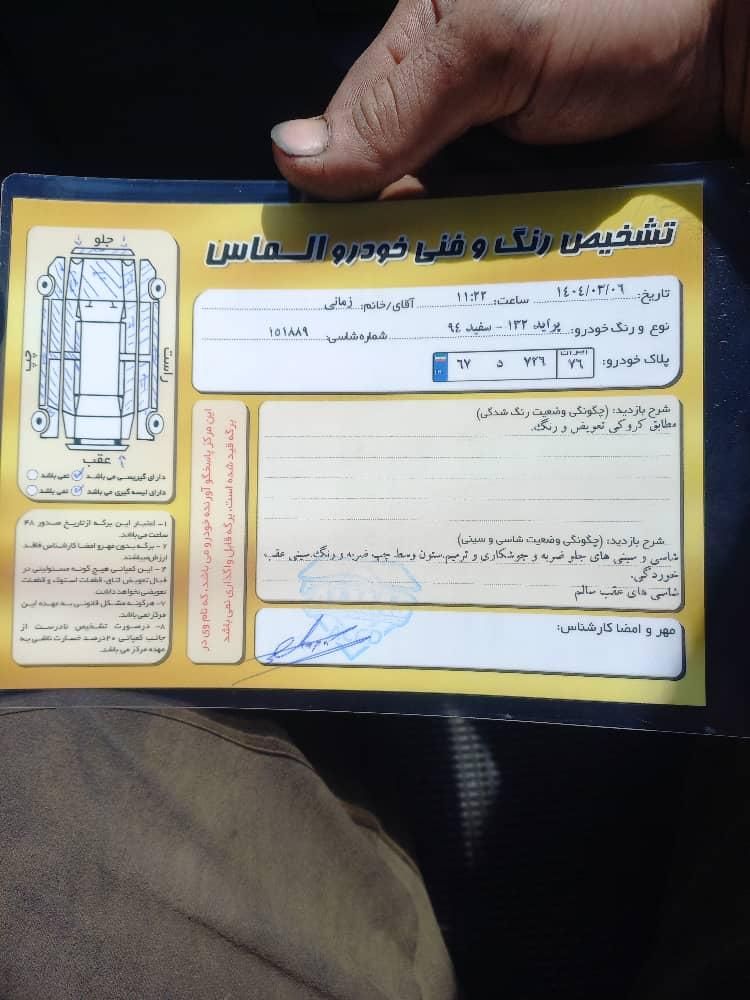 تشخیص رنگ و فنی خودرو الــماس
تاریخ: ۱۴۰۴/۰۳/۰۶ ساعت: ۱۱:۲۲ آقای/خانم: زمانی
نوع و رنگ خودرو: پراید ۱۳۲ - سفید ۹۴ شماره شاسی: ۱۵۱۸۸۹
پلاک خودرو: ایران ۷۶ ۷۲۶ د ۶۷
شرح بازدید: (چگونگی وضعیت رنگ شدگی)
مطابق کروکی تعویض و رنگ.
شرح بازدید: (چگونگی وضعیت شاسی و سینی)
شاسی و سینی های جلو ضربه و جوشکاری و ترمیم.ستون وسط چپ ضربه و رنگ.سینی عقب
خوردگی.
شاسی های عقب سالم
مهر و امضا کارشناس:
این مرکز پاسخگو آورنده خودرو می باشد، که نام وی در
برگه قید شده است، برگه قابل واگذاری نمی باشد
جلو
راست
چپ
عقب
دارای گیرپسی می باشد نمی باشد
دارای لیسه گیری می باشد نمی باشد
۱- اعتبار این برگه از تاریخ صدور ۴۸
ساعت می باشد.
۲- برگه بدون مهر و امضا کارشناس فاقد
ارزش میباشد.
۳- این کمپانی هیچ گونه مسئولیتی در
قبال تعویض اتاق، قطعات استوک و قطعات
تعویضی نخواهد داشت.
۷- هرگونه مشکل قانونی به عهده این
مرکز نمی باشد.
۸- درصورت تشخیص نادرست از
جانب کمپانی ۲۰درصد خسارت ناشی به
عهده مرکز می باشد.